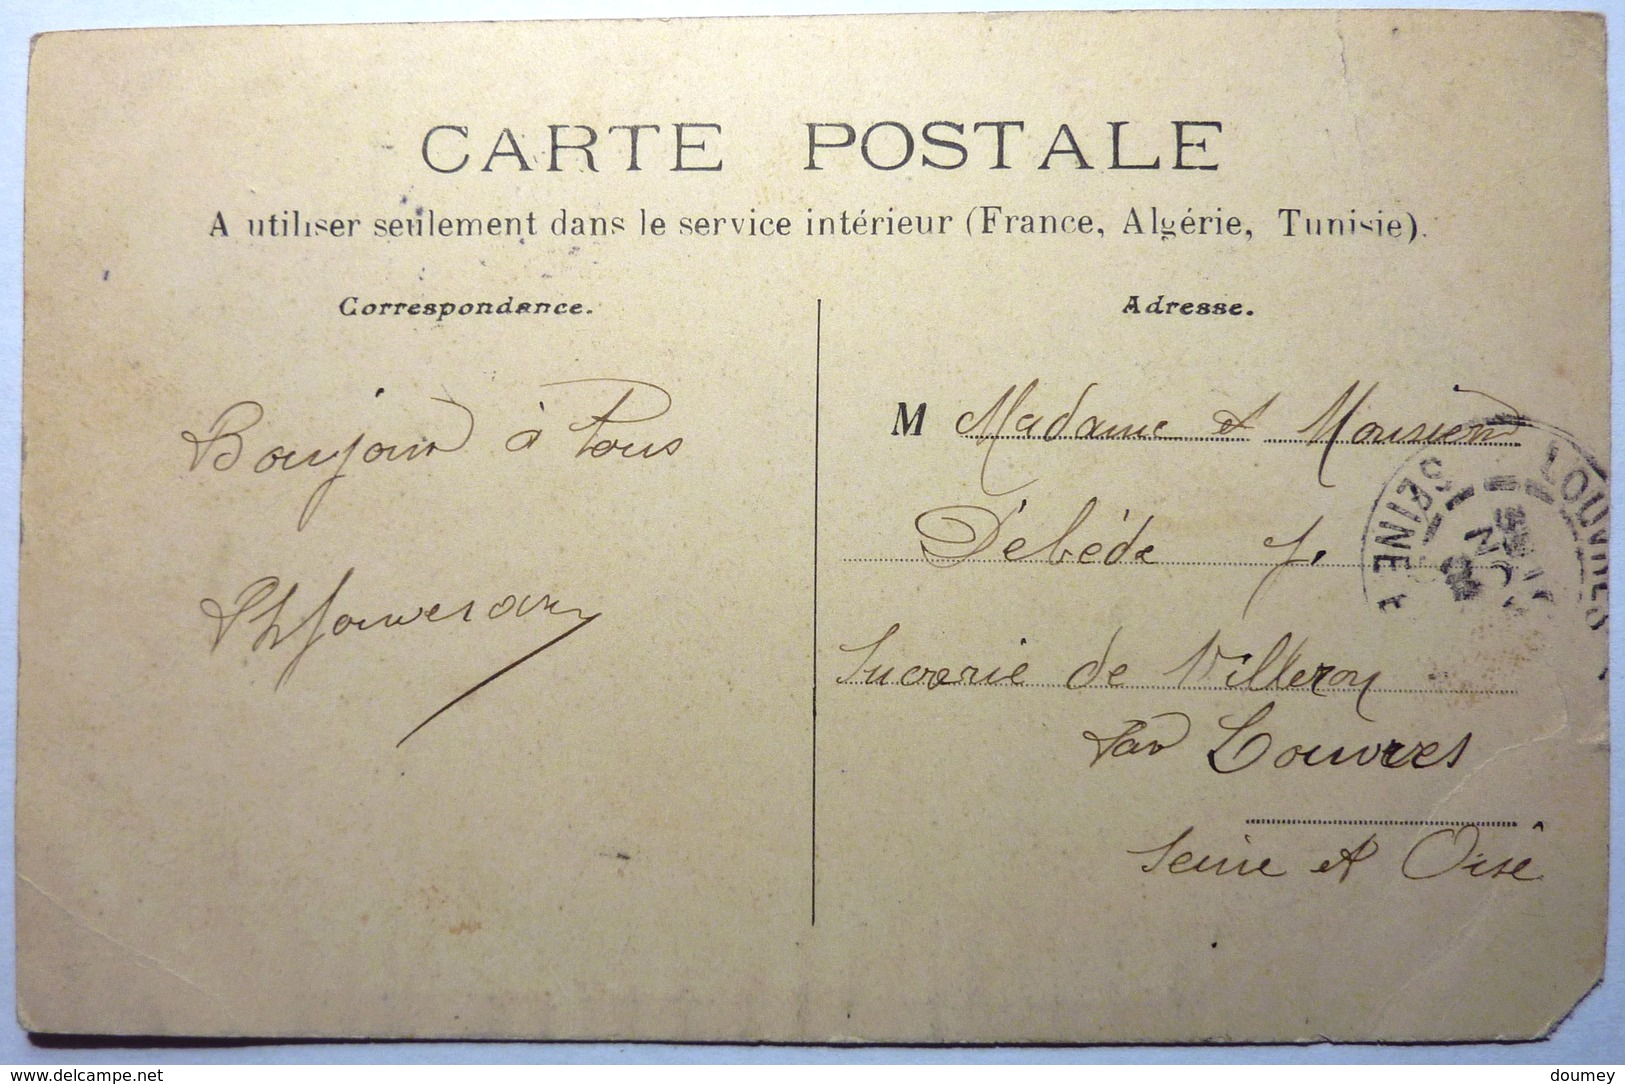 CARTE POSTALE
A utiliser seulement dans le service intérieur (France, Algérie, Tunisie).
Correspondance.
Adresse.
Bonjour à Tous
M Madame et Monsieur
Débéde
Sucrerie de Villeron
par Louvres
Seine et Oise
LOUVRES
SEINE
www.delcampe.net
doumey